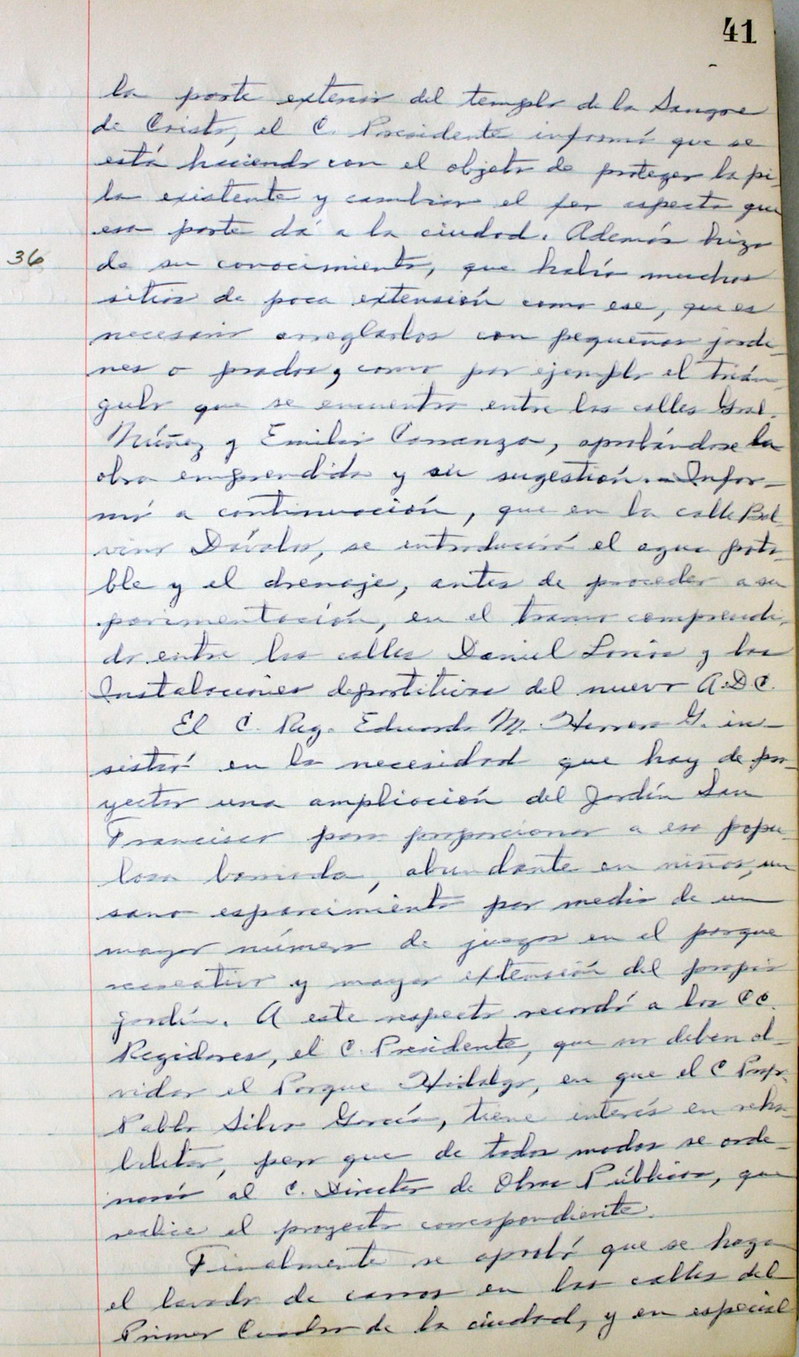 41
la parte exterior del templo de la Sangre
de Cristo, el C. Presidente informó que se
está haciendo con el objeto de proteger la pi-
la existente y cambiar el feo aspecto que
esa parte dá a la ciudad. Además hizo
36
de su conocimiento, que había muchos
sitios de poca extensión como ese, que es
necesario arreglarlos con pequeños jardi-
nes o prados, como por ejemplo el trián-
gulo que se encuentra entre las calles Gral.
Núñez y Emilio Carranza, aprobándose la
obra emprendida y su sugestión.- Infor-
mó a continuación, que en la calle Bal-
vino Dávalos, se introducirá el agua pota-
ble y el drenaje, antes de proceder a su
pavimentación, en el tramo comprendi-
do entre las calles Daniel Larios y las
Instalaciones deportivas del nuevo A.D.C.
El C. Reg. Eduardo M. Herrera G. in-
sistió en la necesidad que hay de pro-
yectar una ampliación del Jardín San
Francisco para proporcionar a esa popu-
losa barriada, abundante en niños, un
sano esparcimiento por medio de un
mayor número de juegos en el parque
recreativo y mayor extensión del propio
jardín. A este respecto recordó a los CC.
Regidores, el C. Presidente, que no deben ol-
vidar el Parque Hidalgo, en que el C.
Pablo Silva García, tiene interés en reha-
bilitar, pero que de todos modos se orde-
nará al C. Director de Obras Públicas, que
realice el proyecto correspondiente.
Finalmente se aprobó que se haga
el lavado de carros en las calles del
Primer Cuadro de la ciudad, y en especial